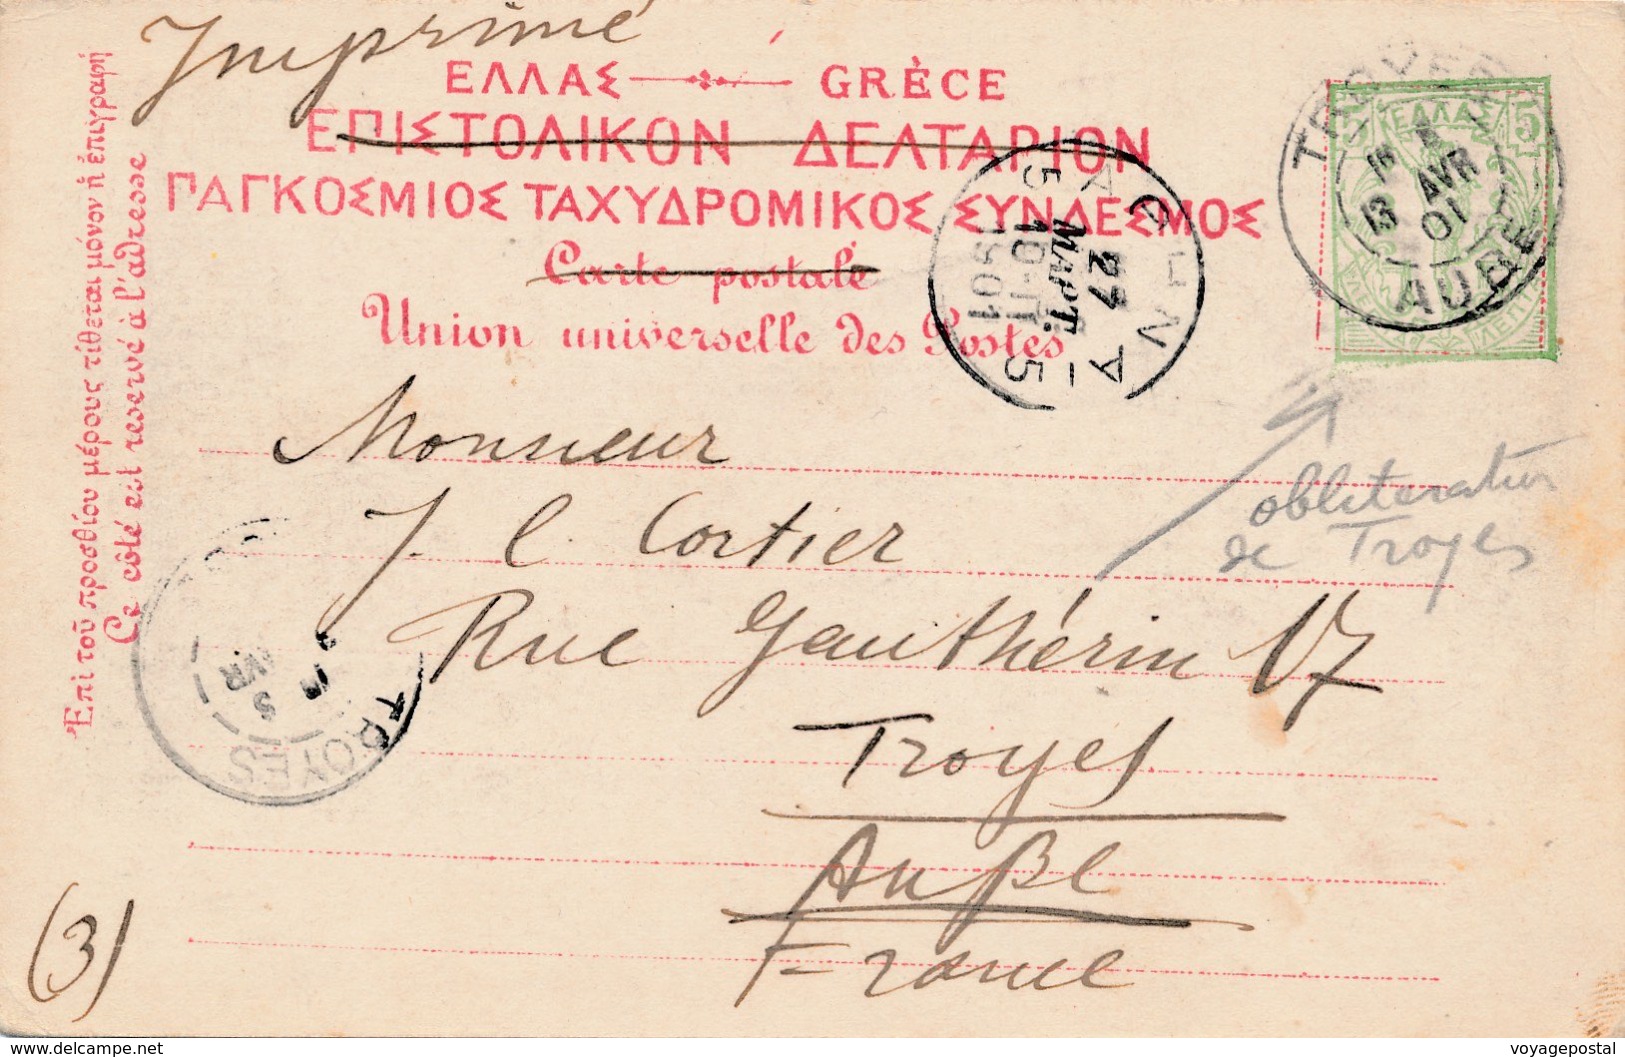 Imprimé
ΕΛΛΑΣ GRÈCE
ΕΠΙΣΤΟΛΙΚΟΝ ΔΕΛΤΑΡΙΟΝ
ΠΑΓΚΟΣΜΙΟΣ ΤΑΧΥΔΡΟΜΙΚΟΣ ΣΥΝΔΕΣΜΟΣ
Carte postale
Union universelle des Postes
Ἐπὶ τοῦ προσθίου μέρους τίθεται μόνον ἡ ἐπιγραφή
Ce côté est reservé à l'adresse
5 ΕΛΛΑΣ 5
ΛΕΠΤΑ
TROYES
AVR
01
AUBE
ΑΘΗΝΑΙ
27
ΜΑΡΤ.
1901
5 5
obliteration
de Troyes
Monsieur
J. C. Cortier
Rue Gauthérin 17
Troyes
Aube
France
TROYES
5
AVR
(3)
delcampe.net
voyagepostal